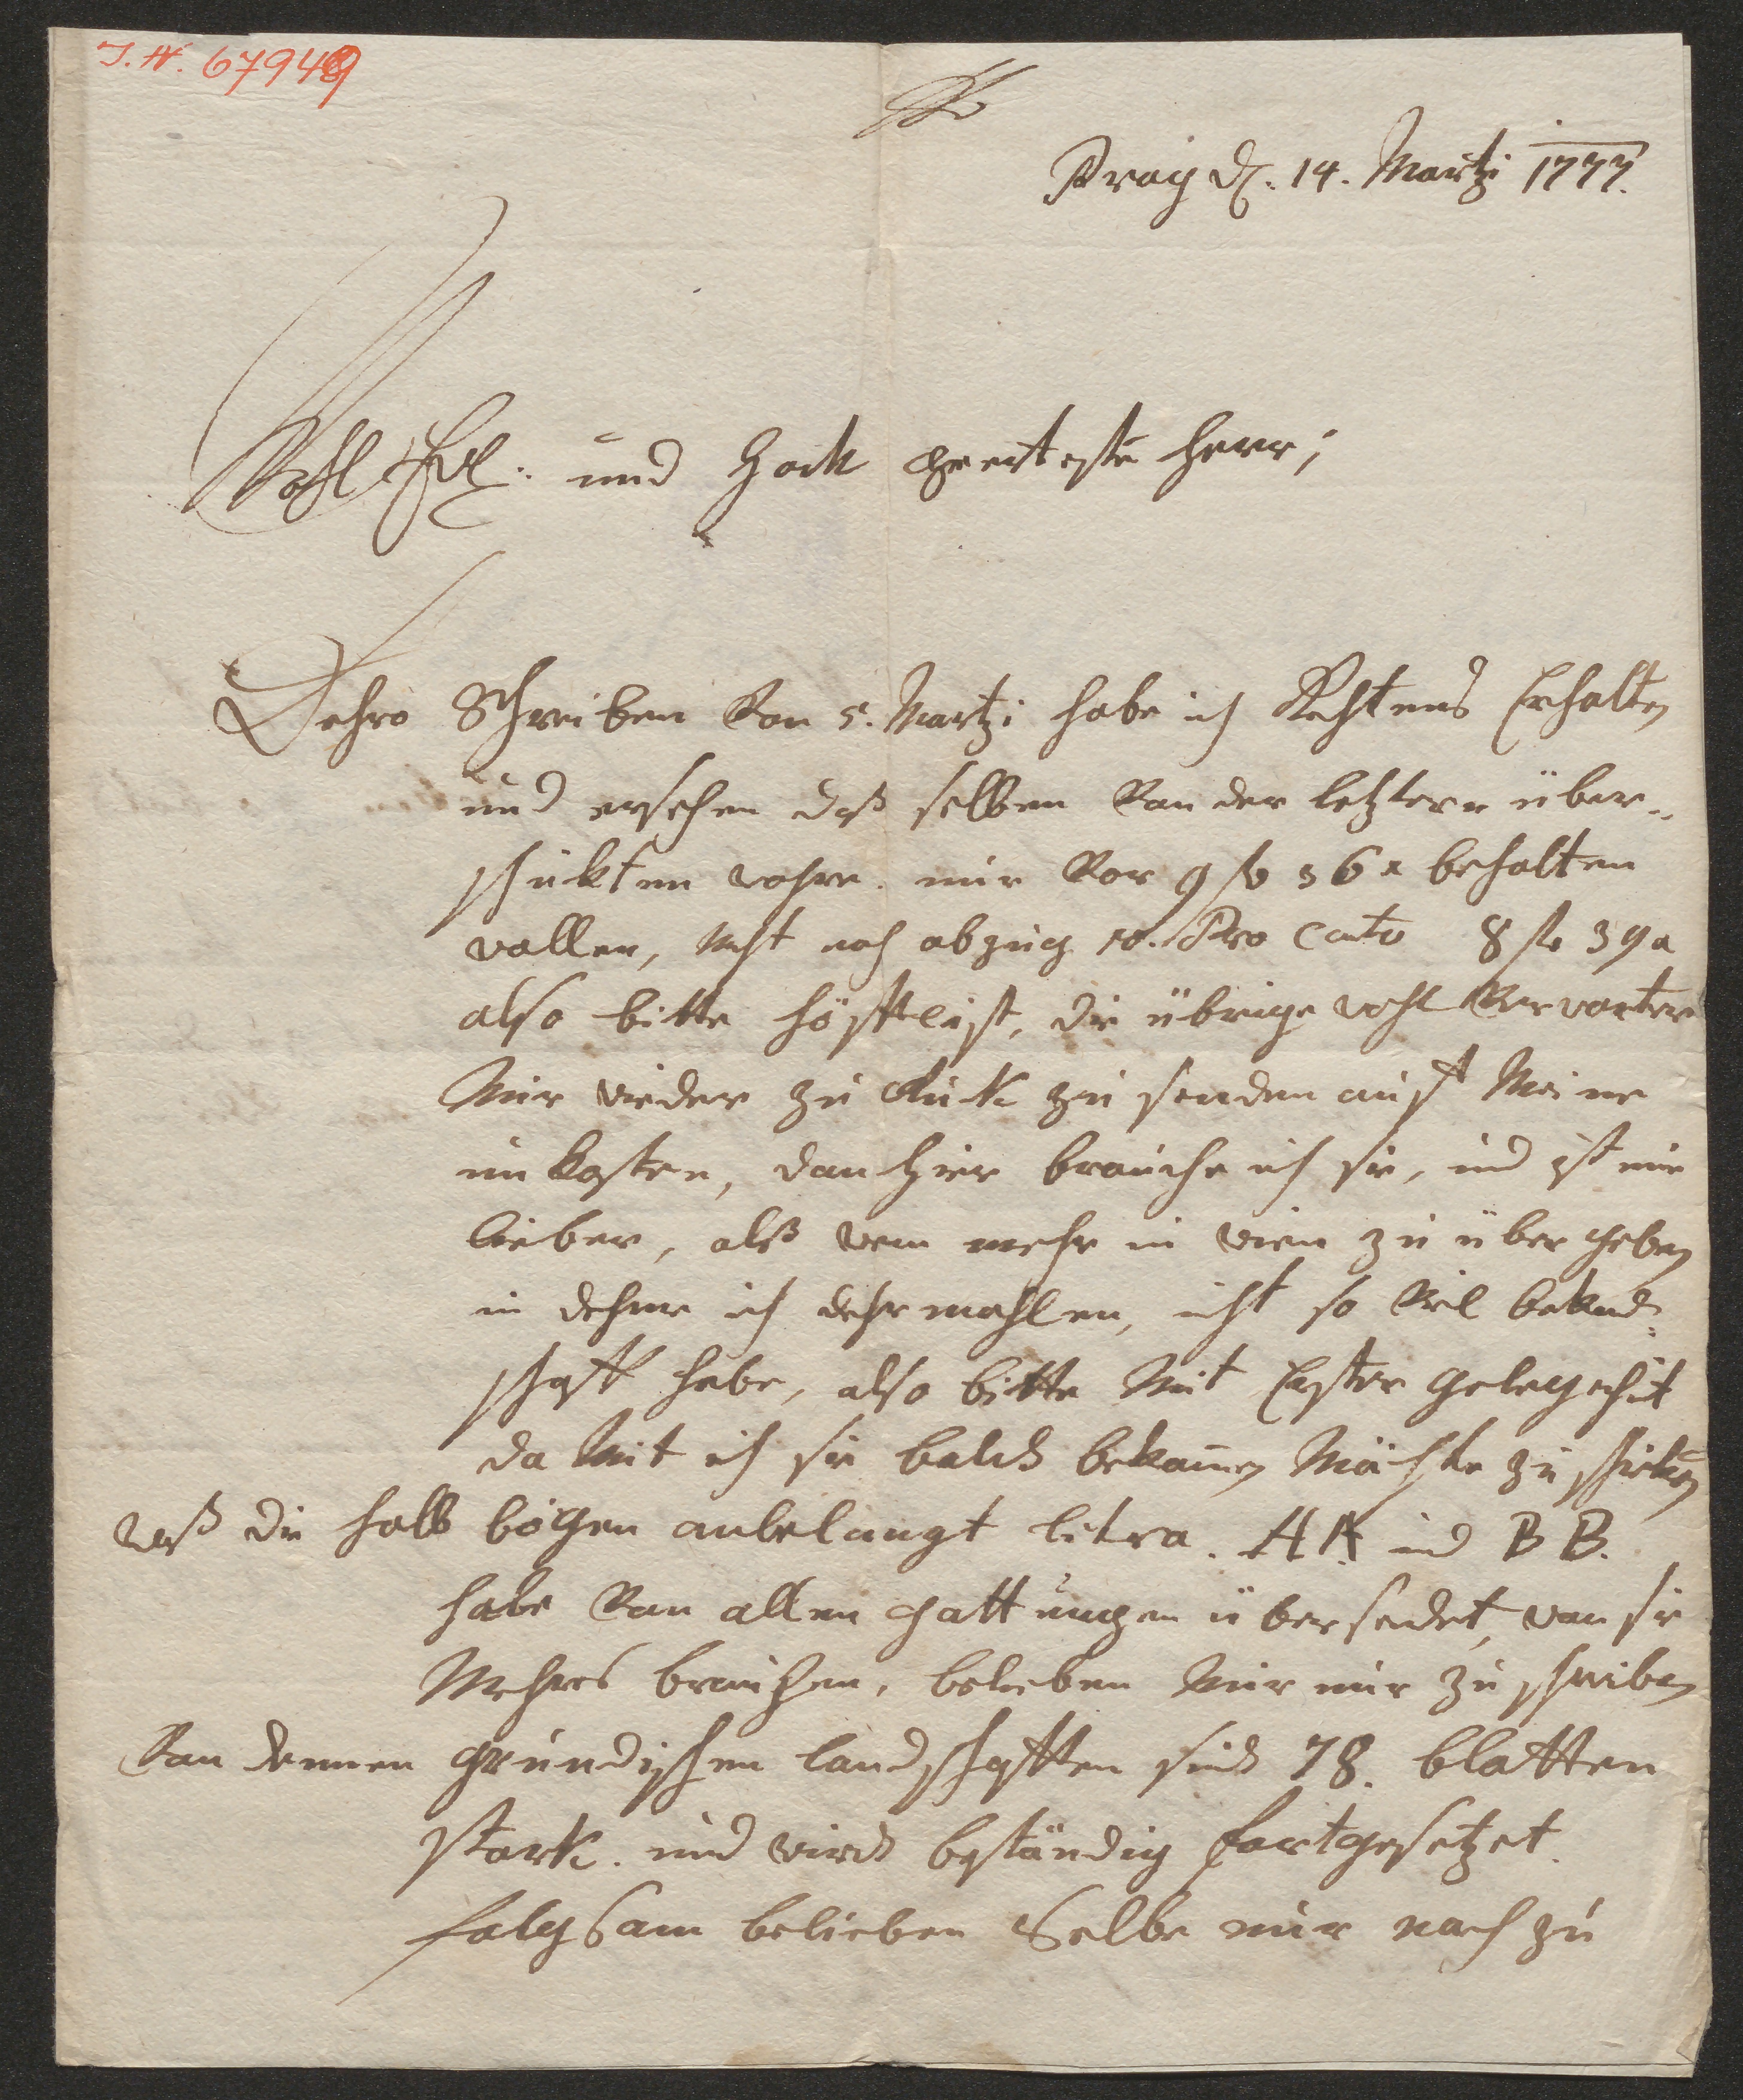 J. N. 67949
Prag d. 14. Martzi 1777.
Wohl Edl. und Hoch geertester Herr;
Dehro Schreiben Von 5. Martzi habe ich Rechtens Erhalten
und ersehen daß selben Von der letztern über-
schickten wahre. nur Vor 9 fl 36 x behalten
wollen, Mst nach abzug 10. Pro Cento 8 fl 39 x
also bitte höfflichst, die übrige wohl Verwarter
Mir wieder zu Ruck zu senden auff Meine
unkosten, dan hier brauche ich sie, und ist mir
lieber, alß wem mehr in wien zu übergeben
in dehme ich dehrmahlen, nicht so Vil bekand-
schafft habe, also bitte Mit Erster gelegenheit
da Mit ich sie baldt bekomen Möchte zu schicken
waß die halb bögen anbelangt litra. AA. und BB.
habe Von allen gattungen übersendet, wan sie
Mehres brauchen, belieben Mir nur zu schreiben
Von dennen gründischen landschafften sindt 78. blatten
starck. und wirdt beständig fortgesetzet.
folgsam belieben Selbe nur nach zu